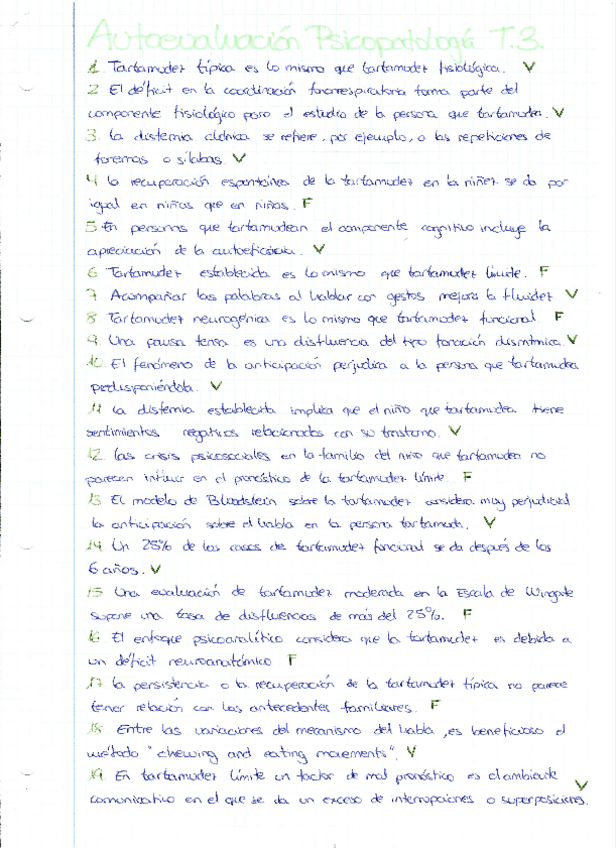 Autoevaluación Psicopatología T.3.
1. Tartamudez típica es lo mismo que tartamudez fisiológica. V
2 El déficit en la coordinación fonorrespiratoria forma parte del
componente fisiológico para el estudio de la persona que tartamudea. V
3. La disfemia clónica se refiere, por ejemplo, a las repeticiones de
fonemas o sílabas. V
4 La recuperación espontánea de la tartamudez en la niñez se da por
igual en niñas que en niños. F
5 En personas que tartamudean el componente cognitivo incluye la
apreciación de la autoeficacia. V
6 Tartamudez establecida es lo mismo que tartamudez límite. F
7 Acompañar las palabras al hablar con gestos mejora la fluidez V
8 Tartamudez neurogénica es lo mismo que tartamudez funcional F
9. Una pausa tensa es una disfluencia del tipo fonación disrítmica. V
10. El fenómeno de la anticipación perjudica a la persona que tartamudea
predisponiéndola. V
11 La disfemia establecida implica que el niño que tartamudea tiene
sentimientos negativos relacionados con su trastorno. V
12. Las crisis psicosociales en la familia del niño que tartamudea no
parecen influir en el pronóstico de la tartamudez límite. F
13 El modelo de Bloodstein sobre la tartamudez considera muy perjudicial
la anticipación sobre el habla en la persona tartamuda. V
14 Un 25% de los casos de tartamudez funcional se da después de los
6 años. V
15 Una evaluación de tartamudez moderada en la Escala de Wingate
supone una tasa de disfluencias de más del 25%. F
16 El enfoque psicoanalítico considera que la tartamudez es debida a
un déficit neuroanatómico F
17 La persistencia o la recuperación de la tartamudez típica no parece
tener relación con los antecedentes familiares. F
18 Entre las variaciones del mecanismo del habla, es beneficioso el
método "chewing and eating movements". V
19 En tartamudez límite un factor de mal pronóstico es el ambiente
comunicativo en el que se da un exceso de interrupciones o superposiciones. V